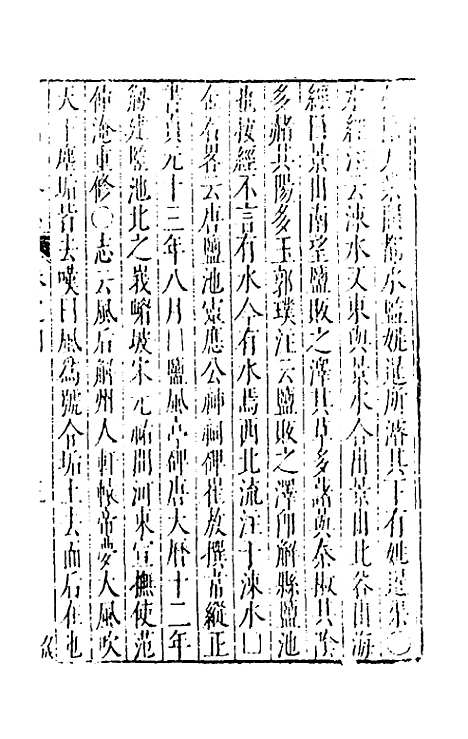 都水監姚暹所濬其下有姚暹渠〇
水經注云涑水又東與景水合出景山北谷山海
經曰景山南望鹽販之澤其草多藷藇秦椒其陰
多赭其陽多玉郭璞注云鹽販之澤即解縣鹽池
也按經不言有水今有水焉西北流注于涑水囗
金石畧云唐鹽池靈應公神祠碑崔敖撰韋縱正
書貞元十三年八月囗鹽風亭碑唐大曆十二年
建鹽池北之峩嵋坡宋元祐間河東宣撫使范
仲淹重修〇志云風后解州人軒轅帝夢大風吹
天下塵垢皆去嘆曰風為號令垢土去而后在也